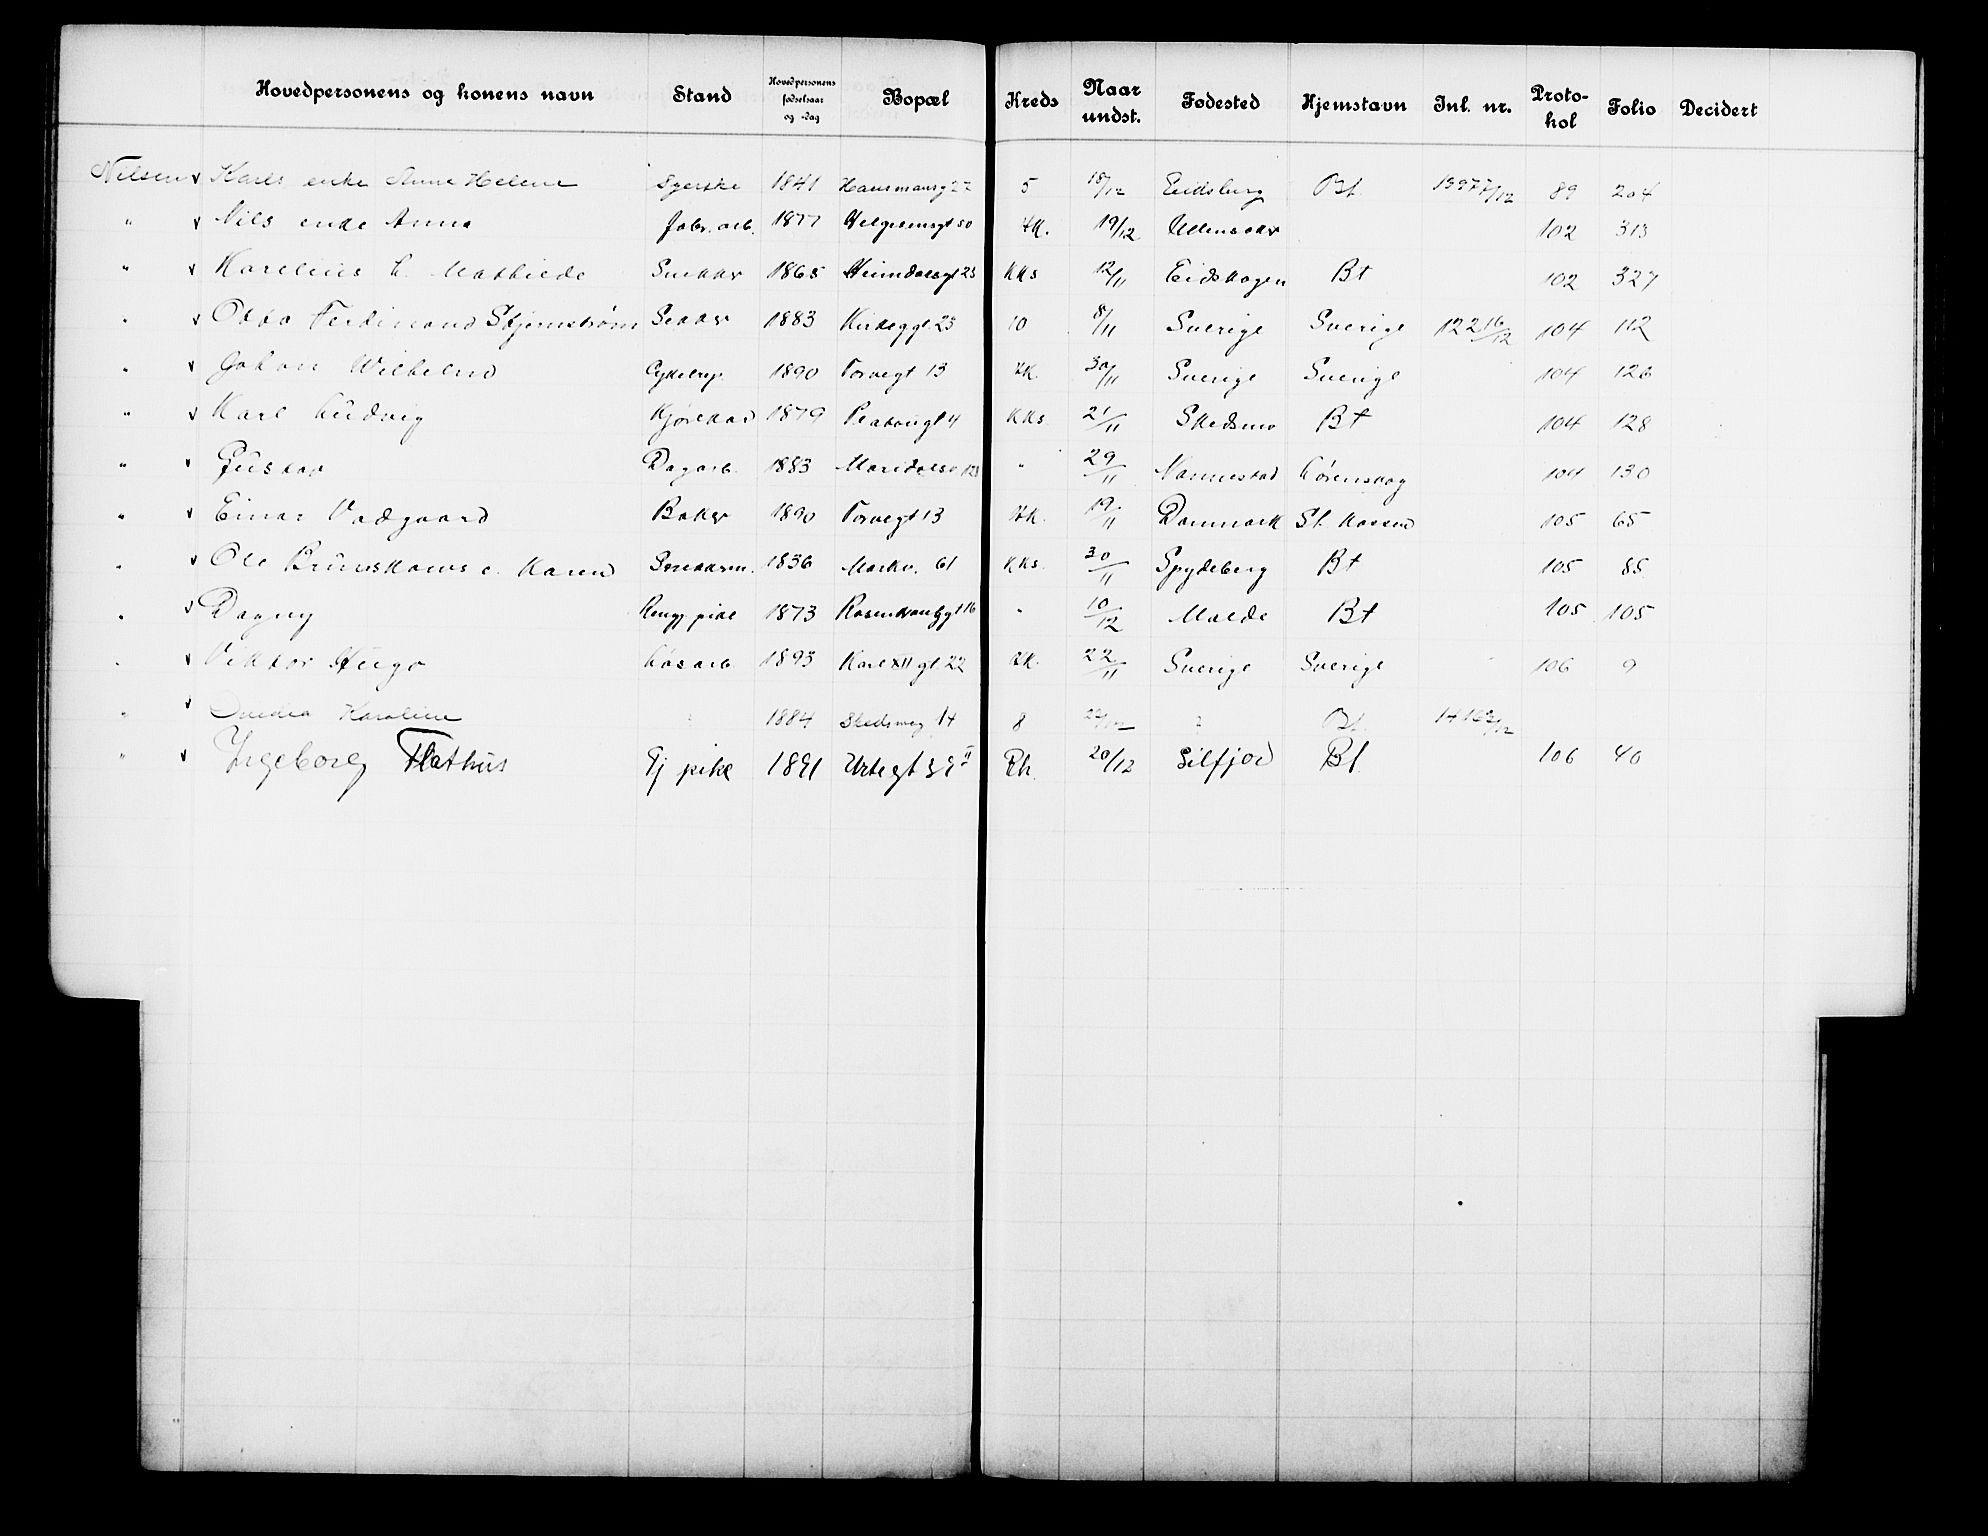 Hovedpersonens og konens navn Stand Hovedpersonens fødselsaar og -dag Bopæl Kreds Naar undst. Fødested Hjemstavn Inl. nr. Protokol Folio Decidert
Nilsen v Karls enke Anne Helene Syerske 1841 Hausmansg 27 5 18/12 Eidsberg Bt. 1397 7/12 89 204
" v Nils enke Anna Fabr. arb. 1877 Helgesensgt 50 ZK. 19/12 Ullensaker 102 313
" v Karelius h. Mathilde Snekker 1865 Heimdalsgt 23 KKs 12/11 Eidskogen Bt 102 327
" v Otto Ferdinand Stjernstrøm 1883 Kirkeggt 23 10 8/11 Sverige Sverige 122 16/12 104 112
" v Johan Wilhelm Cykelrep. 1890 Torvegt 13 ZK. 30/11 Sverige Sverige 104 126
" v Karl Ludvig Kjørekar 1879 4 KKs. 21/11 Skedsmo Bt 104 128
" v Gustav Dagarb. 1883 Maridalsv 128 " 29/11 Nannestad Lørenskog 104 130
" v Einar Vadgaard Baker 1890 Torvegt 13 ZK. 19/11 Danmark St. kassen 105 65
" v Ole Brunskows e. Karen Snekkerm. 1836 Markv. 61 KKs. 30/11 Spydeberg Bt 105 85
" v Dagny Rengj. pike 1873 Rosenkransgt 16 " 10/12 Molde Bt 105 105
" v Viktor Hugo Løsarb 1893 Karl XII gt 22 ZK. 22/11 Sverige Sverige 106 9
" v Karoline ? 1884 Skedsmog 14 8 ? Bt. 1416 2/12
" v Ingeborg Flathus Tj pike 1891 Urtegt 39 II Rh. 20/12 Silfjord Bt. 106 40